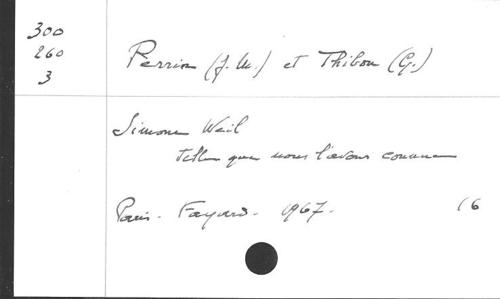 300
260
3
Perrin (J. M.) et Thibon (G.)
Simone Weil
telle que nous l'avons connue
Paris - Fayard - 1967.
16